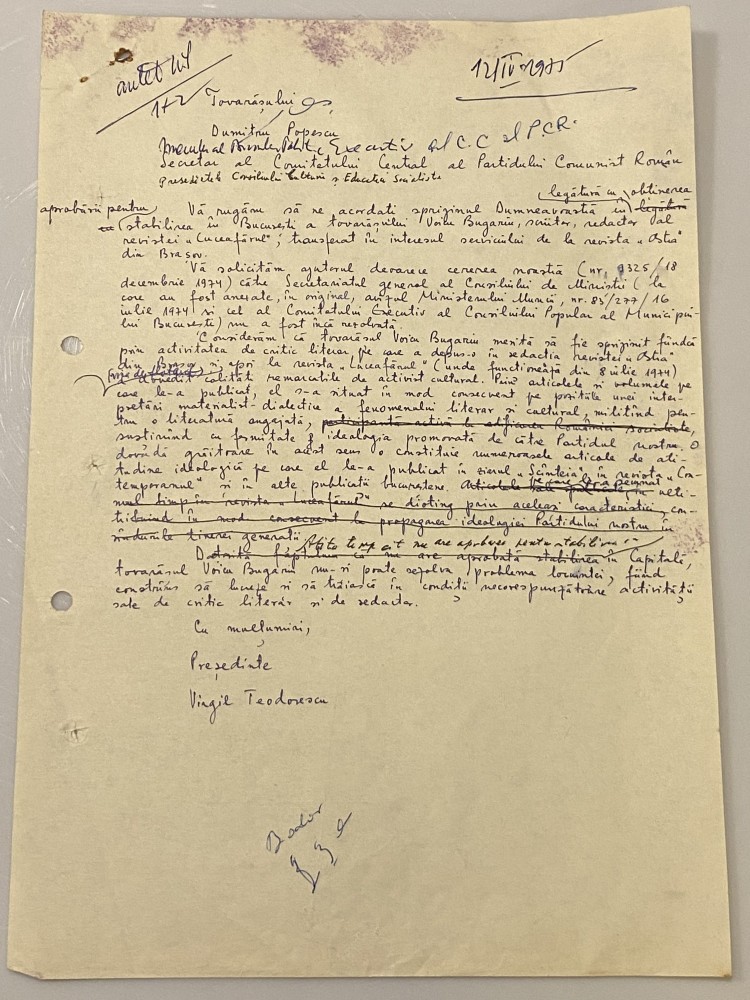 antet US
1+2
12/IV 1975
Tovarășului
Dumitru Popescu
Executiv al C.C al P.C.R.
Secretar al Comitetului Central al Partidului Comunist Român
președintele Consiliului Culturii și Educației Socialiste
legătură cu obținerea
aprobării pentru Vă rugăm să ne acordați sprijinul Dumneavoastră în legătură
cu stabilirea în București a tovarășului Voicu Bugariu, scriitor, redactor al
revistei „Luceafărul", transferat în interesul serviciului de la revista „Astra"
din Brașov.
Vă solicităm ajutorul deoarece cererea noastră (nr. 1325/18
decembrie 1974) către Secretariatul general al Consiliului de Miniștri (la
care au fost anexate, în original, avizul Ministerului Muncii, nr. 85/277/16
iulie 1974 și cel al Comitetului Executiv al Consiliului Popular al Municipiu-
lui București) nu a fost încă rezolvată.
Considerăm că tovarășul Voicu Bugariu merită să fie sprijinit fiindcă
prin activitatea de critic literar pe care a depus-o în redacția revistei „Astra"
din Brașov și apoi la revista „Luceafărul" (unde funcționează din 8 iulie 1974)
a dovedit calități remarcabile de activist cultural. Prin articolele și volumele pe
care le-a publicat, el s-a situat în mod consecvent pe pozițiile unei inter-
pretări materialist-dialectice a fenomenului literar și cultural, militînd pen-
tru o literatură angajată, participantă activă la edificarea României socialiste,
susținînd cu fermitate ideologia promovată de către Partidul nostru. O
dovadă grăitoare în acest sens o constituie numeroasele articole de ati-
tudine ideologică pe care el le-a publicat în ziarul „Scînteia", în revista „Con-
temporanul" și în alte publicații bucureștene. Articolele sale publicate în ulti-
mul timp în revista „Luceafărul" se disting prin aceleași caracteristici, con-
tribuind în mod consecvent la propagarea ideologiei Partidului nostru în
rîndurile tinerei generații.
Atîta timp cît nu are aprobare pentru stabilirea
Datorită faptului că nu are aprobată stabilirea în Capitală,
tovarășul Voicu Bugariu nu-și poate rezolva problema locuinței, fiind
constrîns să lucreze și să trăiască în condiții necorespunzătoare activității
sale de critic literar și de redactor.
Cu mulțumiri,
Președinte
Virgil Teodorescu